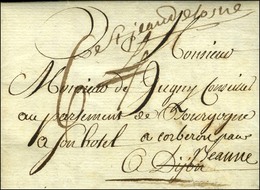 De St jean de Losne
Monsieur
Monsieur de Jugny Conseiller
au parlement de Bourgogne
a son hotel a corberon par
Beaune
a Dijon